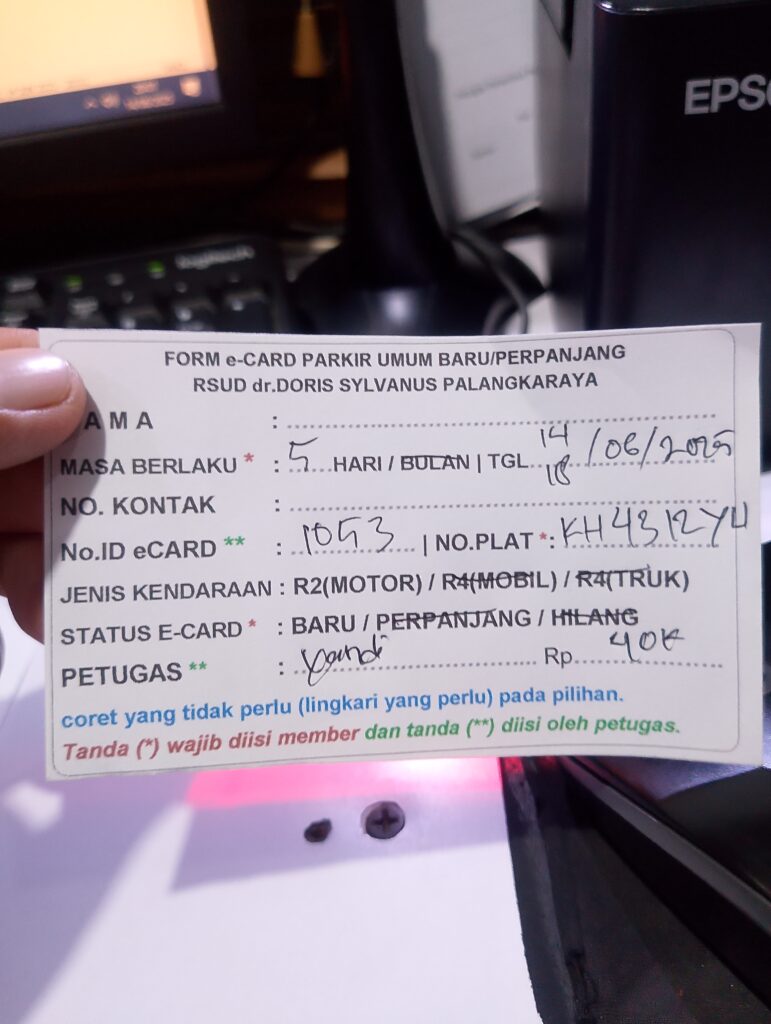 EPS
logitech
FORM e-CARD PARKIR UMUM BARU/PERPANJANG
RSUD dr.DORIS SYLVANUS PALANGKARAYA
AMA :
MASA BERLAKU * : 5 HARI / BULAN | TGL 14 18 /06/2025
NO. KONTAK :
No.ID eCARD ** : 1053 | NO.PLAT *: KH4312YU
JENIS KENDARAAN : R2(MOTOR) / R4(MOBIL) / R4(TRUK)
STATUS E-CARD * : BARU / PERPANJANG / HILANG
PETUGAS ** : Yandi Rp. 40K
coret yang tidak perlu (lingkari yang perlu) pada pilihan.
Tanda (*) wajib diisi member dan tanda (**) diisi oleh petugas.